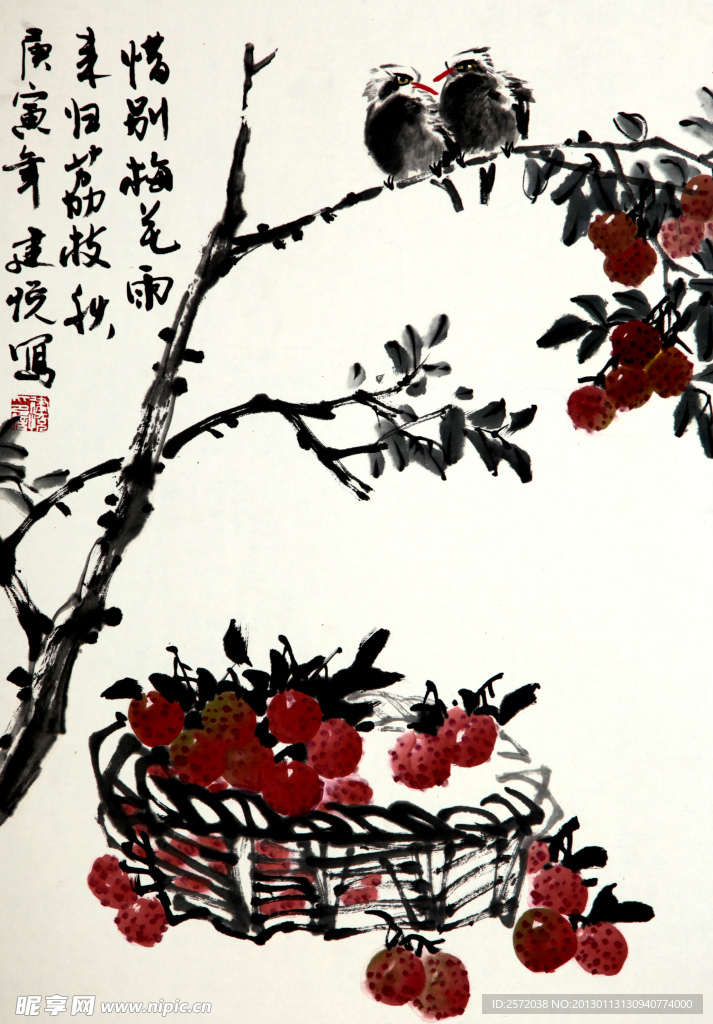 惜别梅花雨
来归荔枝秋
庚寅年 建悦写
昵享网 www.nipic.cn
ID:2572038 NO:20130113130940774000